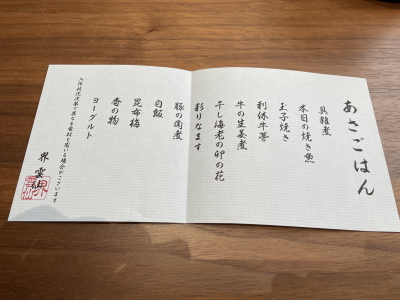 あさごはん
具雑煮
本日の焼き魚
玉子焼き
利休牛蒡
牛の生姜煮
干し海老の卯の花
彩りなます
豚の角煮
白飯
昆布梅
香の物
ヨーグルト
入荷状況次第で異なる食材を用いる場合がございます
界 雲仙